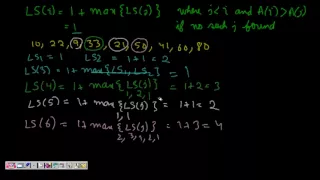 LS(i) = 1 + max {LS(j)} where j<i and A(i) > A(j)
= 1 if no such j found
10, 22, 9, 33, 21, 50, 41, 60, 80
LS1 = 1 LS2 = 1+1 = 2
LS(3) = 1+max{LS1, LS2} = 1
LS(4) = 1+max{LS(j)} = 1+2 = 3
1, 2, 1
LS(5) = 1+max{LS(j)} = 1+1 = 2
1, 1
LS(6) = 1+max{LS(j)} = 1+3 = 4
2, 3, 1, 2, 1